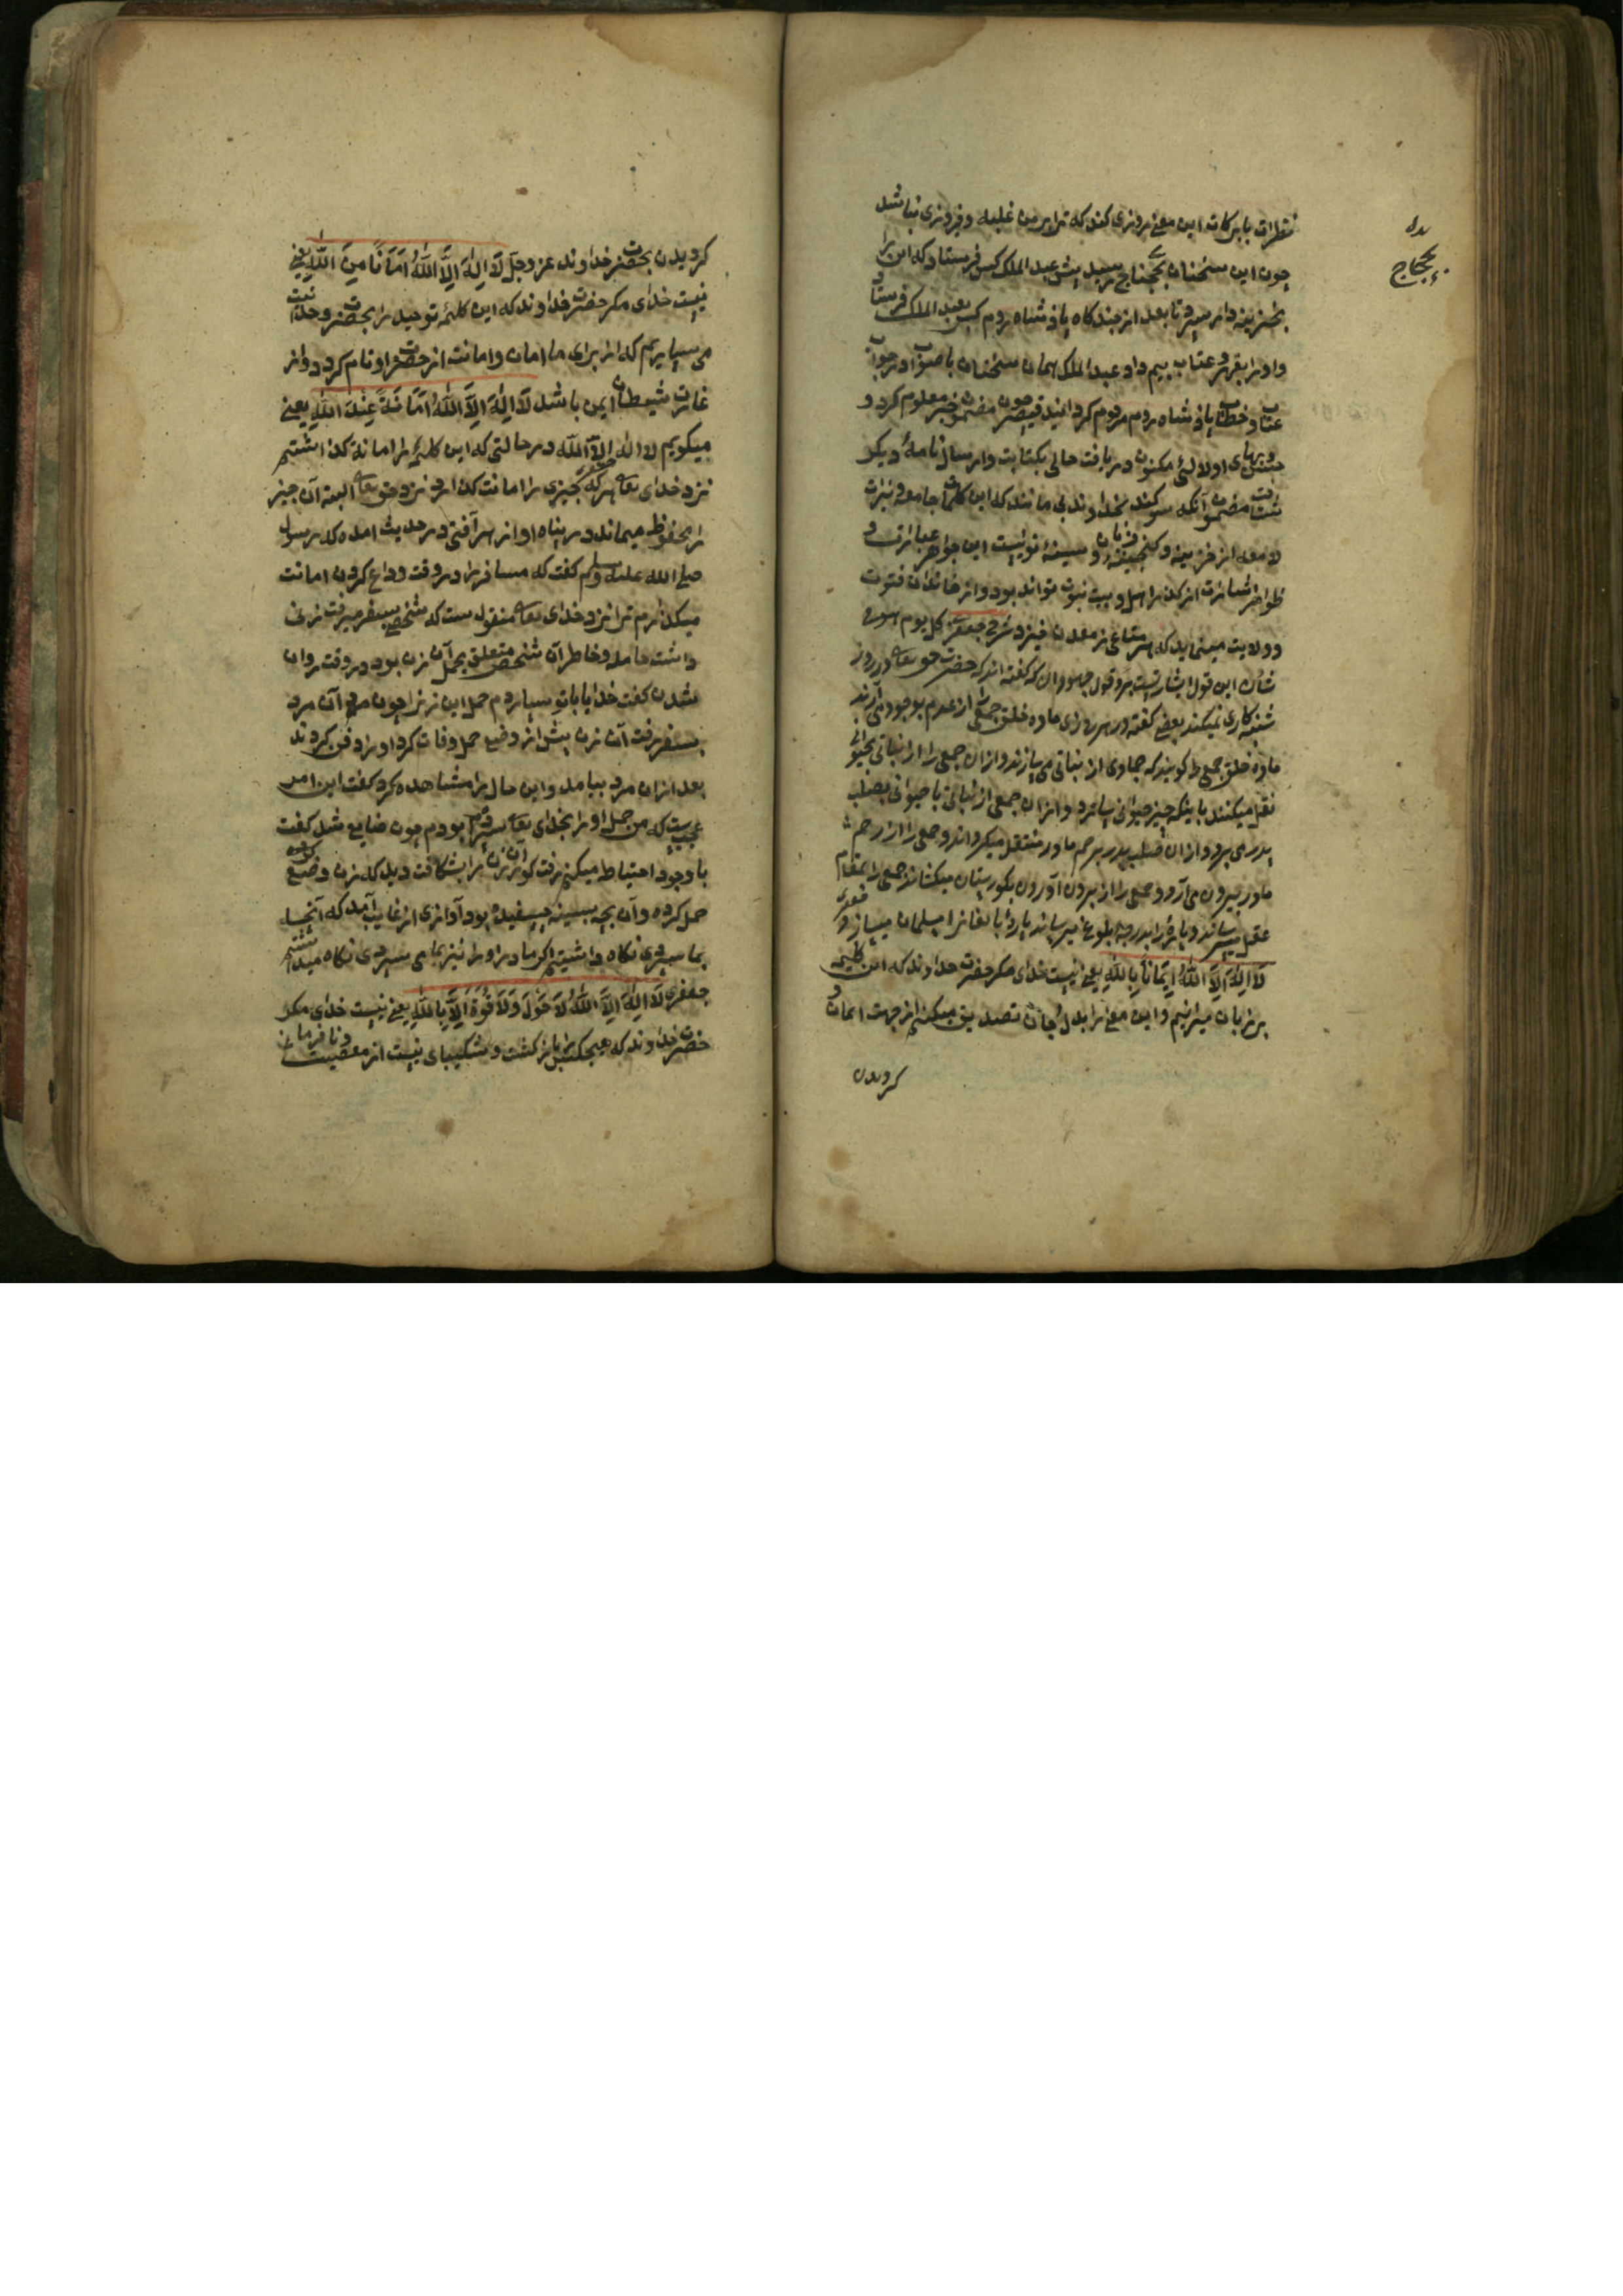 نظرات بابركات این معنی روزی کند که ترا بر من غلبه و فیروزی نباشد
چون این سخنان بحجاج رسید پیش عبد الملک کس فرستاد که این را
بخزینه دار سپرد تا بعد از چند کاه پاذشاه روم کس بعبد الملک فرستاد
و او را بقهر و عتاب بیم داد عبد الملک همان سخنان باصواب او در جواب
عتاب و خطاب پاذشاه روم مرقوم کردانید قیصر چون مضمون معلوم کرد و
اولالئ مکنون دریافت حالی بکتابت و ارسال نامهٔ دیکر
مضمون آنکه سوکند بخداوند بی مانند که این کلمات جامعه
لامعه از خزینه و کنجینهٔ و سینهٔ تو نیست این جواهر
از کذر اهل و بیت نبوت تواند بود و از خاندان فتوت
و ولایت مینماید که هر متاعی ز معدن خیزد شرح جعفر کل یوم هو فی
شأن این قول اشارتست برد قول جهودان که کفته اند که حضرت حق تعالی در روز
شنبه کاری نمیکند بعضی کفته در هر روزی ماده خلق جمعی را از عدم بوجود می آرند
ماده خلق جمعی را کویند که جمادی از نباتی می سازند و از ان جمعی را از نباتی بحیوانی
نقل میکنند باینکه چیز حیوانی سازد و از ان جمعی از نباتی یا حیوانی بصلب
پدر می برد و از ان صلب پدر برحم مادر منتقل میکرداند و جمعی را از رحم
مادر بیرون می آرد و جمعی را از بیرون آوردن بکورستان میکشاند جمعی را بمقام
عقل میرساند و پارهٔ را بدرجه بلوغ میرساند پارهٔ بالغانرا مسلمان میسازد
لَا اِلٰهَ اِلَّا اللّٰهُ اِیمَانًا بِاللّٰهِ یعنی نیست خدای مکر حضرت خداوند که این کلیمه
بر زبان میرانیم و این معنی را بدل و جان تصدیق میکنیم از جهت ایمان و
کرویدن
بحجاج
کرویدن بحضرت خداوند عز وجل لَا اِلٰهَ اِلَّا اللّٰهُ اَمَانًا مِنَ اللّٰهِ یعنی
نیست خدای مکر حضرت خداوند که این کلمهٔ توحید را بحضرت وحدانیت
می سپاریم که از برای ما امان و امانت از حضرت او نام کردد و از
غارت شیطان ایمن باشد لَا اِلٰهَ اِلَّا اللّٰهُ اَمَانَةً عِنْدَ اللّٰهِ یعنی
میکویم لا اله الا الله در حالتی که این کلمه را امانة کذاشتیم
نزد خدای تعالی هر که چیزی را امانت کذارد نزد حق تعالی البته آن چیز
محفوظ میماند در پناه او از هر آفتی در حدیث امده که رسول
صلی الله علیه وسلم کفت که مسافر را در وقت وداع کردن امانت
میکذارم ترا نزد خدای تعالی منقولست که شخصی بسفر میرفت زنی
داشت حامله و خاطر آن شخص متعلق بحمل آن زن بود در وقت روان
شدن کفت خدایا باتو سپاردم حمل این زن را چون مرد آن مرد
بسفر رفت آن زن پیش از وضع حمل وفات کرد او را دفن کردند
بعد از ان مرد بیامد و این حال را مشاهده کرد کفت این امر
عجبست که من حمل او را بخدای تعالی سپرده بودم چون ضایع شد کفت
با وجود احتیاط میکنم رفت کور ان زن را بشکافت دید که زن وضع
حمل کرده و آن بچه بسینه چسفیده بود آوازی از غایب آمد که آنچه
بما سپردی نکاه داشتیم اکر مادر او را نیز بما می سپردی نکاه میداشتیم
جعفری لَا اِلٰهَ اِلَّا اللّٰهُ لَا حَوْلَ وَلَا قُوَّةَ اِلَّا بِاللّٰهِ یعنی نیست خدای مکر
حضرت خداوند که هیچکس را باز کشت و شکیبای نیست از معصیت و نا فرمانی